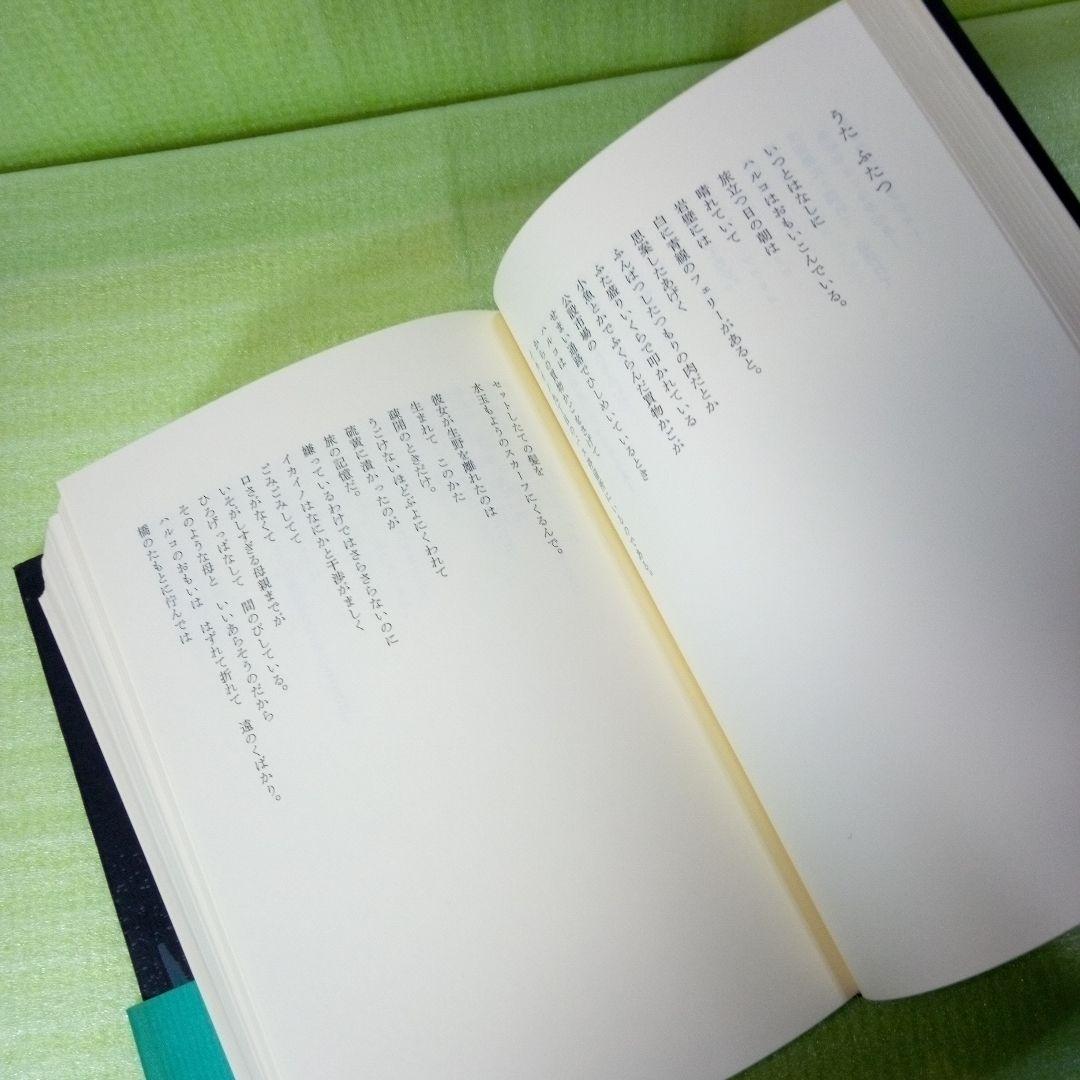 うた ふたつ
いつとはなしに
ハルコはおもいこんでいる。
旅立つ日の朝は
晴れていて
岩壁には
白に青線のフェリーがあると。
思案したあげく
ふんぱつしたつもりの肉だとか
ふた盛りいくらで叩かれている
小魚とかでふくらんだ買物かごが
公設市場の
せまい通路でひしめいているとき
ハルコは
セットしたての髪を
水玉もようのスカーフにくるんで。
彼女が生野を離れたのは
生まれて このかた
疎開のときだけ。
うごけないほどぶよにくわれて
硫黄に漬かったのが
旅の記憶だ。
嫌っているわけではさらさらないのに
イカイノはなにかと干渉がましく
ごみごみしてて
口さがなくて
いそがしすぎる母親までが
ひろげっぱなして 間のびしている。
そのような母と いいあらそうのだから
ハルコのおもいは はずれて折れて 遠のくばかり。
橋のたもとに佇んでは